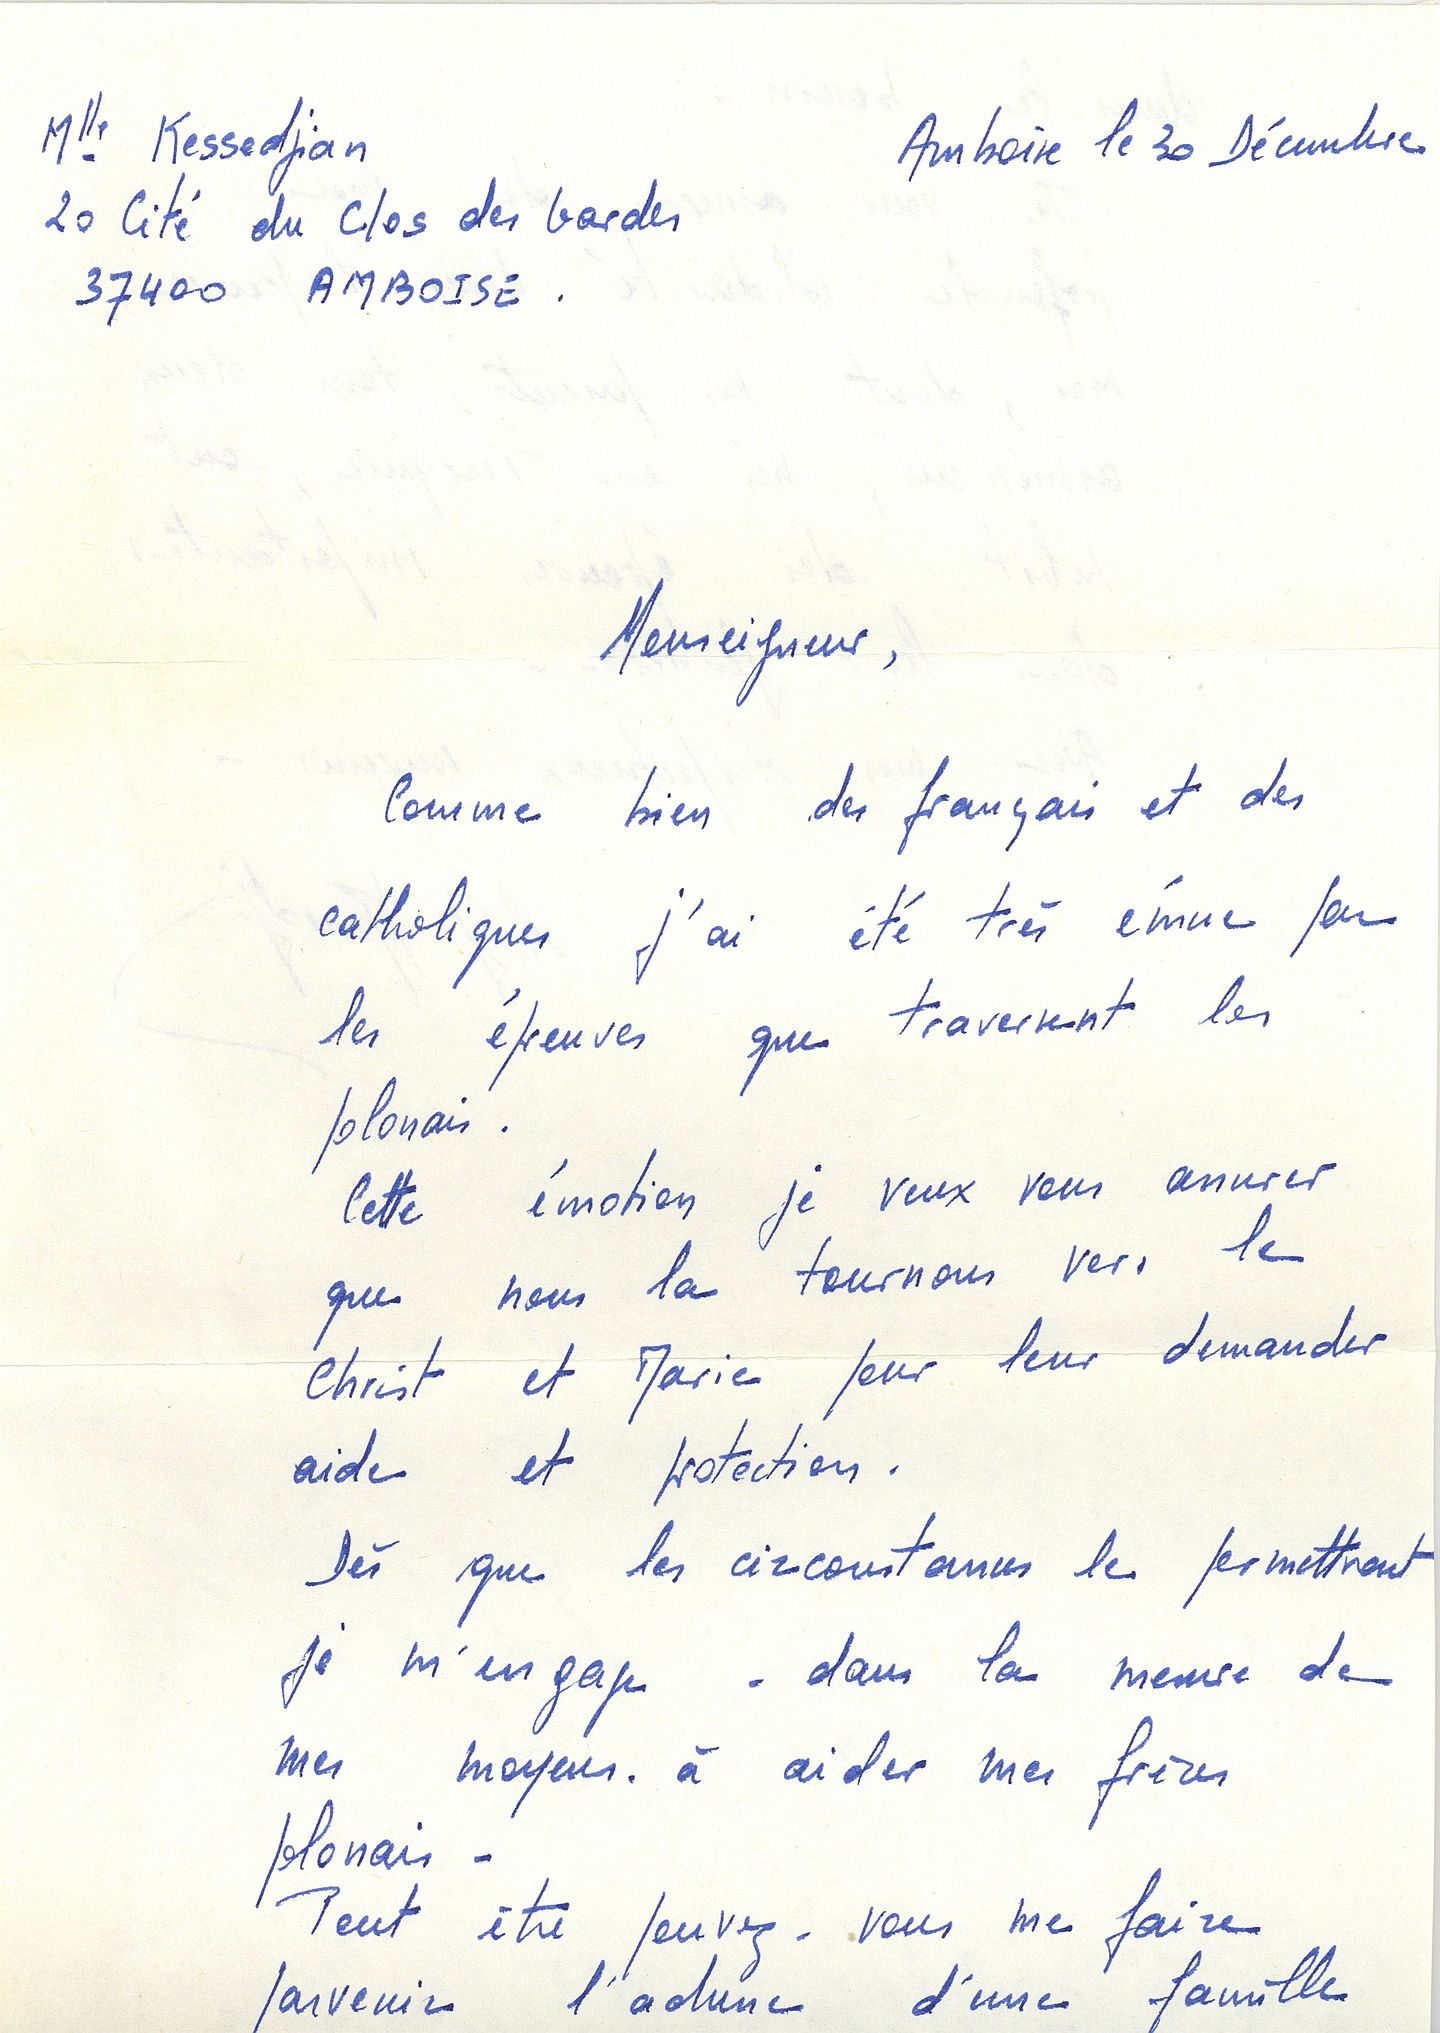 Mlle Kessedjian
Amboise le 30 Décembre
20 Cité du Clos des Gardes
37400 AMBOISE.
Monseigneur,
Comme bien des français et des
catholiques j'ai été très émue par
les épreuves que traversent les
polonais.
Cette émotion je veux vous assurer
que nous la tournons vers le
Christ et Marie pour leur demander
aide et protection.
Dès que les circonstances le permettront
je m'engage - dans la mesure de
mes moyens - à aider mes frères
polonais -
Peut être pouvez-vous me faire
parvenir l'adresse d'une famille